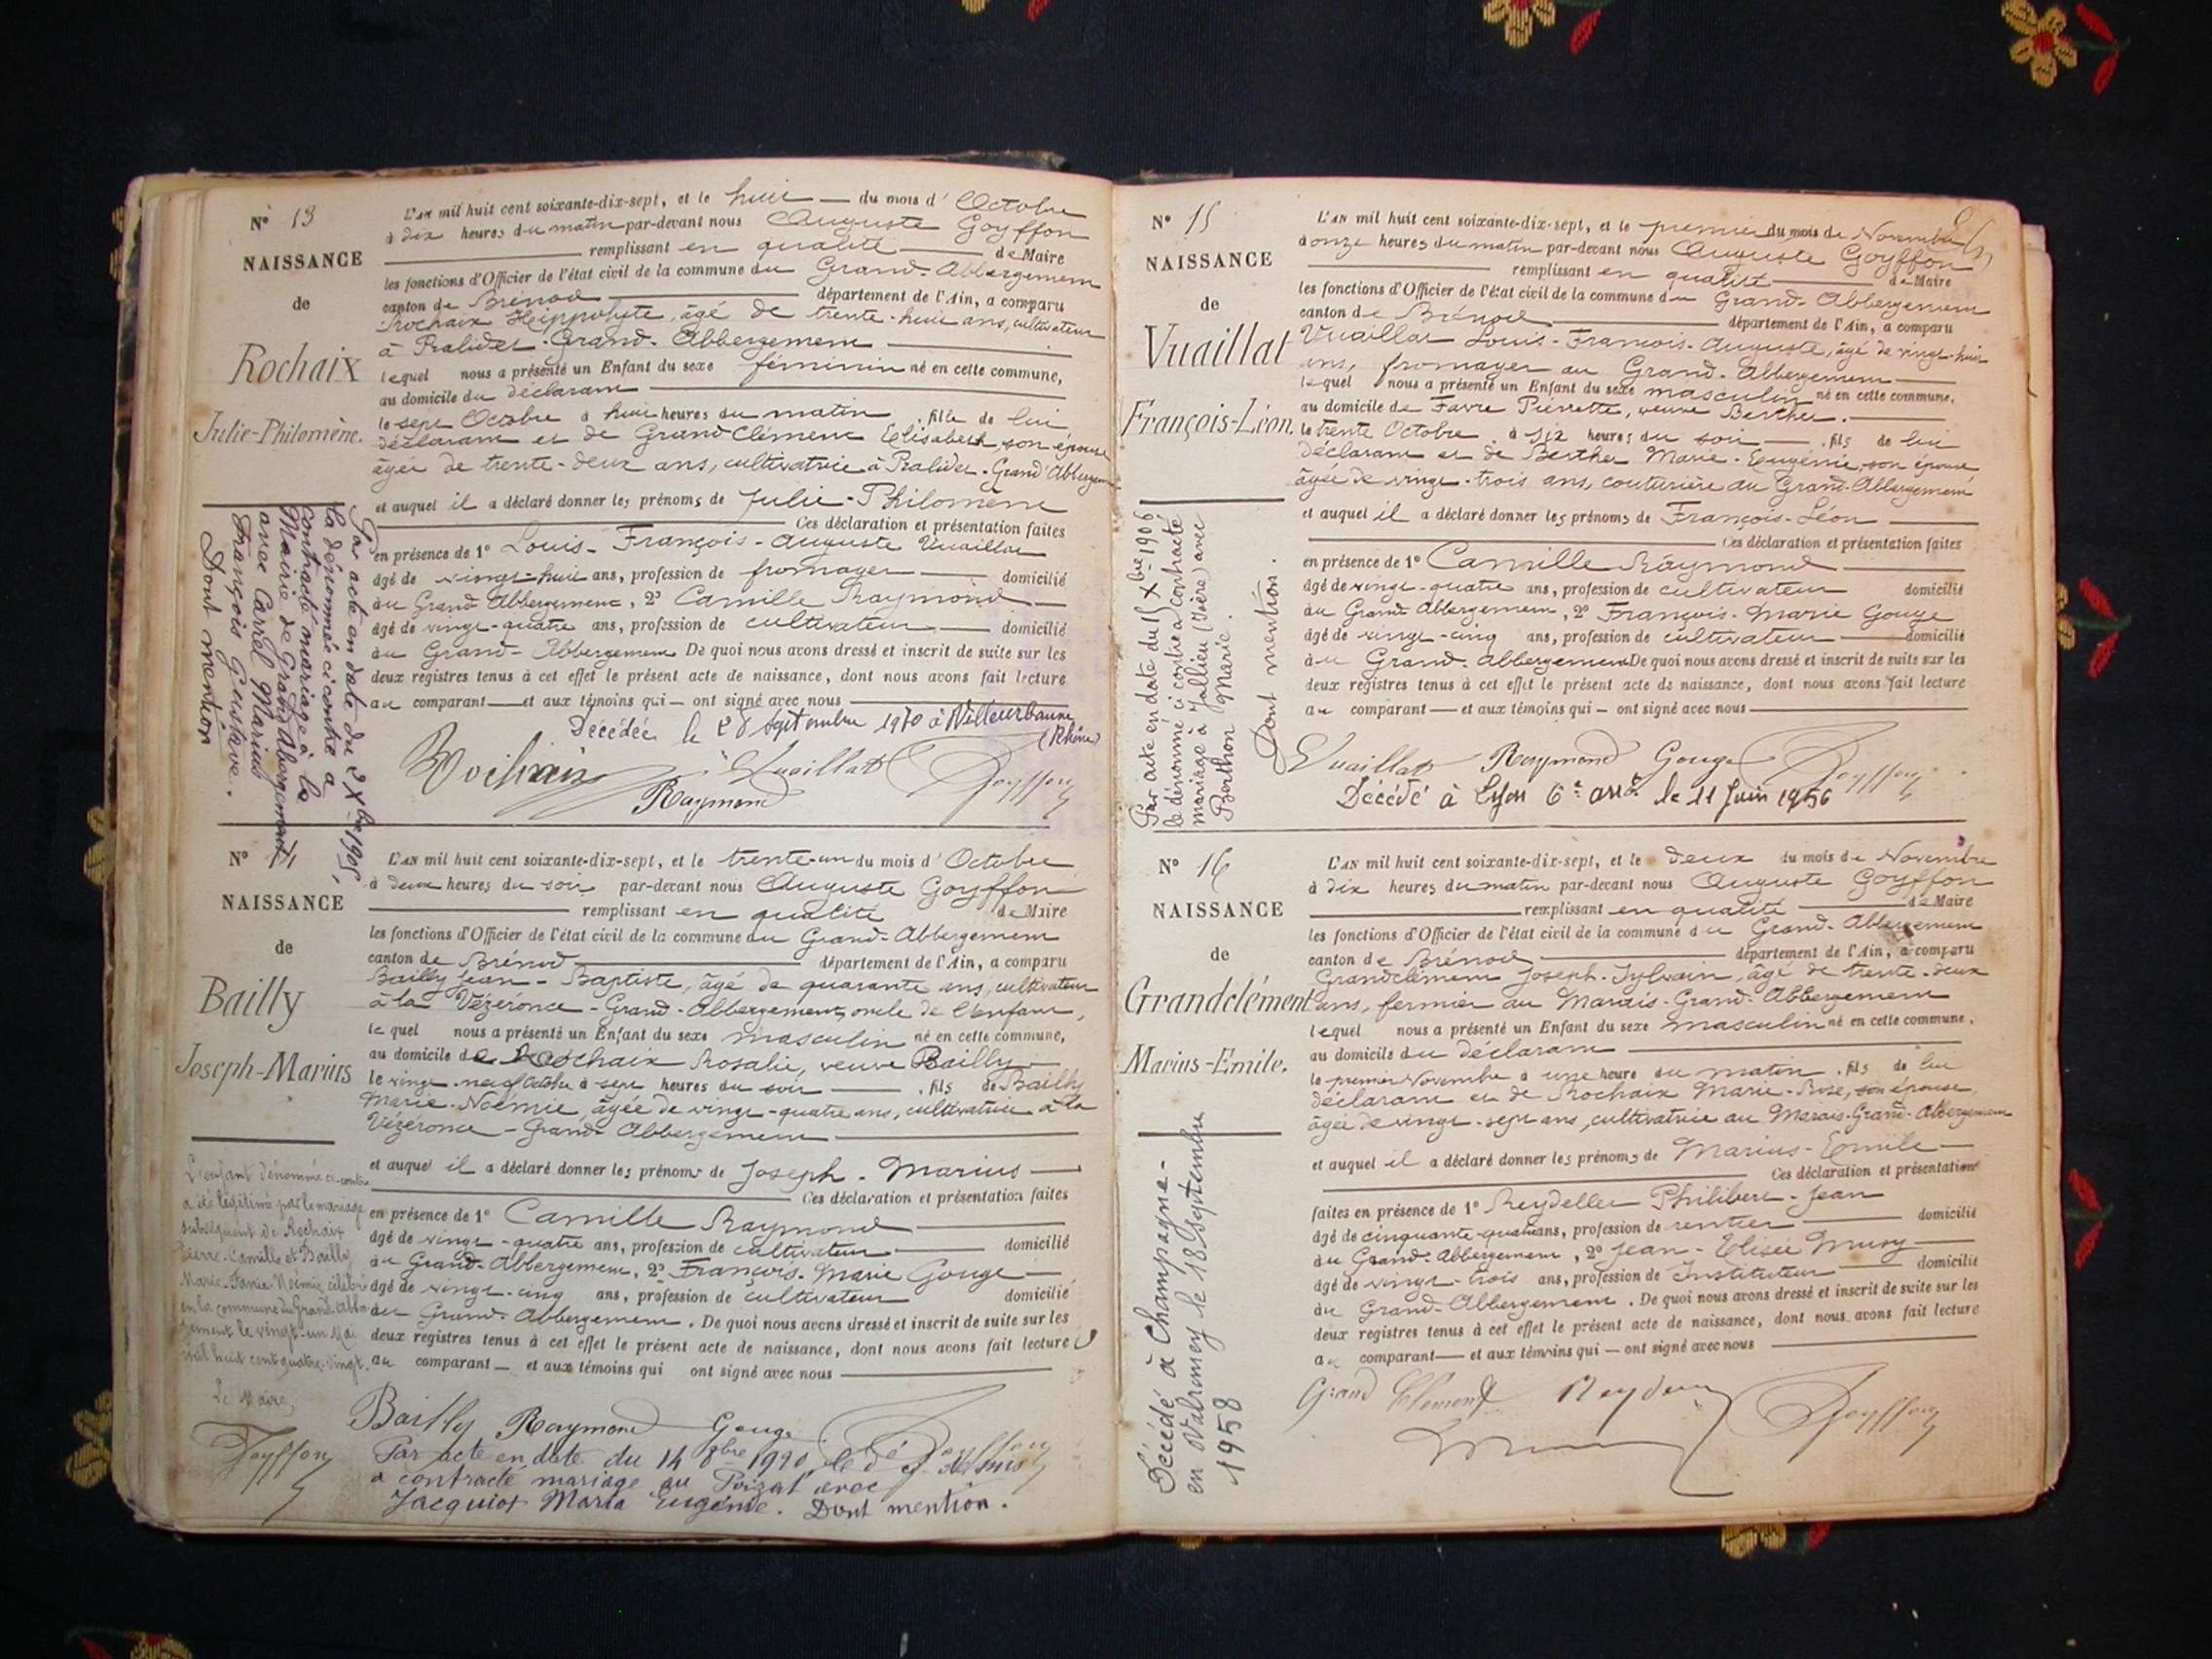 N° 13
NAISSANCE
de
Rochaix
Julie-Philomène.
L'AN mil huit cent soixante-dix-sept, et le huit — du mois d' Octobre
à dix heures du matin par-devant nous Auguste Goyffon
remplissant en qualité de Maire
les fonctions d'Officier de l'état civil de la commune du Grand-Abbergement
canton de Brénod département de l'Ain, a comparu
Rochaix Hippolyte, âgé de trente-huit ans, cultivateur
à Pralides-Grand-Abbergement
lequel nous a présenté un Enfant du sexe féminin né en cette commune,
au domicile du déclarant
le sept Octobre à huit heures du matin, fille de lui
déclarant et de Grand Clément Elisabeth, son épouse
âgée de trente-deux ans, cultivatrice à Pralides-Grand Abbergement
et auquel il a déclaré donner les prénoms de Julie-Philomène
Ces déclaration et présentation faites
en présence de 1° Louis-François-Auguste Vuaillat
âgé de vingt-huit ans, profession de fromager — domicilié
au Grand Abbergement, 2° Camille Raymond —
âgé de vingt-quatre ans, profession de cultivateur — domicilié
au Grand-Abbergement De quoi nous avons dressé et inscrit de suite sur les
deux registres tenus à cet effet le présent acte de naissance, dont nous avons fait lecture
au comparant — et aux témoins qui — ont signé avec nous
Décédée le 28 septembre 1970 à Villeurbanne
(Rhône)
Rochaix Vuaillat Goyffon
Raymond
Par acte en date du 2 Xbre 1905,
la dénommée ci contre a
contracté mariage à la
Mairie de Grand Abergement
avec Carrel Marius
François Gustave.
Dont mention
N° 14
NAISSANCE
de
Bailly
Joseph-Marius
L'AN mil huit cent soixante-dix-sept, et le trente-un du mois d' Octobre
à deux heures du soir par-devant nous Auguste Goyffon
remplissant en qualité de Maire
les fonctions d'Officier de l'état civil de la commune du Grand-Abbergement
canton de Brénod département de l'Ain, a comparu
Bailly Jean-Baptiste, âgé de quarante ans, cultivateur
à la Vézeronce-Grand-Abbergement, oncle de l'enfant,
lequel nous a présenté un Enfant du sexe masculin né en cette commune,
au domicile de Rochaix Rosalie, veuve Bailly
le vingt-neuf Octobre à sept heures du soir —, fils de Bailly
Marie-Noémie, âgée de vingt-quatre ans, cultivatrice à la
Vézeronce-Grand Abbergement
et auquel il a déclaré donner les prénoms de Joseph-Marius —
Ces déclaration et présentation faites
en présence de 1° Camille Raymond
âgé de vingt-quatre ans, profession de cultivateur domicilié
au Grand-Abbergement, 2° François-Marie Gouge —
âgé de vingt-cinq ans, profession de cultivateur domicilié
au Grand-Abbergement. De quoi nous avons dressé et inscrit de suite sur les
deux registres tenus à cet effet le présent acte de naissance, dont nous avons fait lecture
au comparant — et aux témoins qui ont signé avec nous
Bailly Raymond Gouge Goyffon
Par acte en date du 14 8bre
a contracté mariage au Poizat avec
Jacquiot Maria Eugénie. Dont mention.
L'enfant dénommé ci-contre
a été légitimé par le mariage
subséquent de Rochaix
Pierre-Camille et Bailly
Marie-Noémie célébré
en la commune du Grand-Abber
gement le vingt-un Mai
mil huit cent quatre-vingt.
Le Maire,
Goyffon
N° 15
NAISSANCE
de
Vuaillat
François-Léon.
L'AN mil huit cent soixante-dix-sept, et le premier du mois de Novembre
à onze heures du matin par-devant nous Auguste Goyffon
remplissant en qualité de Maire
les fonctions d'Officier de l'état civil de la commune du Grand-Abbergement
canton de Brénod département de l'Ain, a comparu
Vuaillat Louis-François-Auguste, âgé de vingt-huit
ans, fromager au Grand-Abbergement
lequel nous a présenté un Enfant du sexe masculin né en cette commune,
au domicile de Favre Pierrette, veuve Berthet.
le trente Octobre, à six heures du soir —, fils de lui
déclarant et de Berthet Marie-Eugénie, son épouse
âgée de vingt-trois ans, couturière au Grand-Abbergement
et auquel il a déclaré donner les prénoms de François-Léon
Ces déclaration et présentation faites
en présence de 1° Camille Raymond
âgé de vingt-quatre ans, profession de cultivateur domicilié
au Grand Abbergement, 2° François-Marie Gouge
âgé de vingt-cinq ans, profession de cultivateur — domicilié
au Grand-Abbergement De quoi nous avons dressé et inscrit de suite sur les
deux registres tenus à cet effet le présent acte de naissance, dont nous avons fait lecture
au comparant — et aux témoins qui — ont signé avec nous
Vuaillat Raymond Gouge Goyffon
Décédé à Lyon 6e arrt. le 11 Juin 1956
Par acte en date du 15 Xbre 1906
le dénommé ci contre a contracté
mariage à Jallieu (Isère) avec
Berthon Marie.
Dont mention.
N° 16
NAISSANCE
de
Grandclément
Marius-Emile.
L'AN mil huit cent soixante-dix-sept, et le deux du mois de Novembre
à dix heures du matin par-devant nous Auguste Goyffon
remplissant en qualité de Maire
les fonctions d'Officier de l'état civil de la commune du Grand-Abbergement
canton de Brénod département de l'Ain, a comparu
Grandclément Joseph-Sylvain, âgé de trente-deux
ans, fermier au Marais-Grand-Abbergement
lequel nous a présenté un Enfant du sexe masculin né en cette commune,
au domicile du déclarant
le premier Novembre à une heure du matin, fils de lui
déclarant et de Rochaix Marie-Rose, son épouse,
âgée de vingt-sept ans, cultivatrice au Marais-Grand-Abbergement
et auquel il a déclaré donner les prénoms de Marius-Emile —
Ces déclaration et présentation
faites en présence de 1° Reydellet Philibert-Jean
âgé de cinquante-quatre ans, profession de rentier domicilié
au Grand-Abbergement, 2° Jean-Elisée
âgé de vingt-trois ans, profession de Instituteur domicilié
au Grand-Abbergement. De quoi nous avons dressé et inscrit de suite sur les
deux registres tenus à cet effet le présent acte de naissance, dont nous avons fait lecture
au comparant — et aux témoins qui — ont signé avec nous
Grand Clément Goyffon
Décédé à Champagne-
en Valromey le 18 Septembre
1958